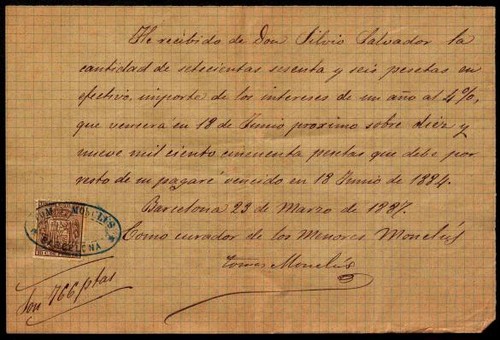 He recibido de Don Silvio Salvador la
cantidad de setecientas sesenta y seis pesetas en
efectivo, importe de los intereses de un año al 4%,
que vencerá en 18 de Junio proximo sobre diez y
nueve mil ciento cincuenta pesetas que debe por
resto de su pagaré vencido en 18 Junio de 1884.
Barcelona 23 de Marzo de 1887.
Como curador de los Menores Monclús
Tomas Monclús
MONCLÚS
BARCELONA
Son 766 ptas